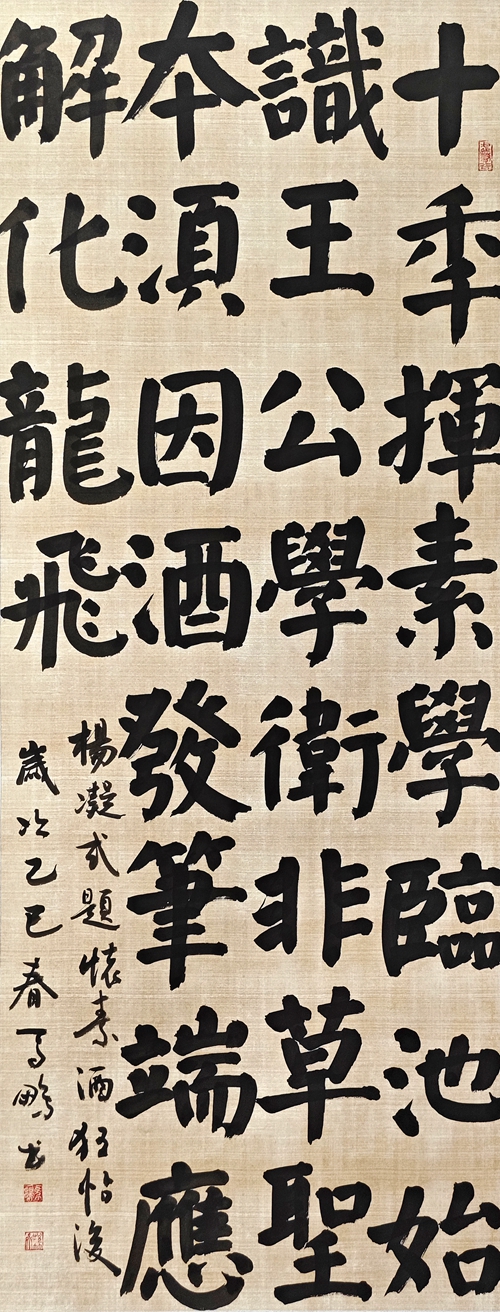 十季揮素學臨池始
識王公學衛非草聖
本須因酒發筆端應
解化龍飛
楊凝式題懷素酒狂帖後
歲次乙巳春 鵬書